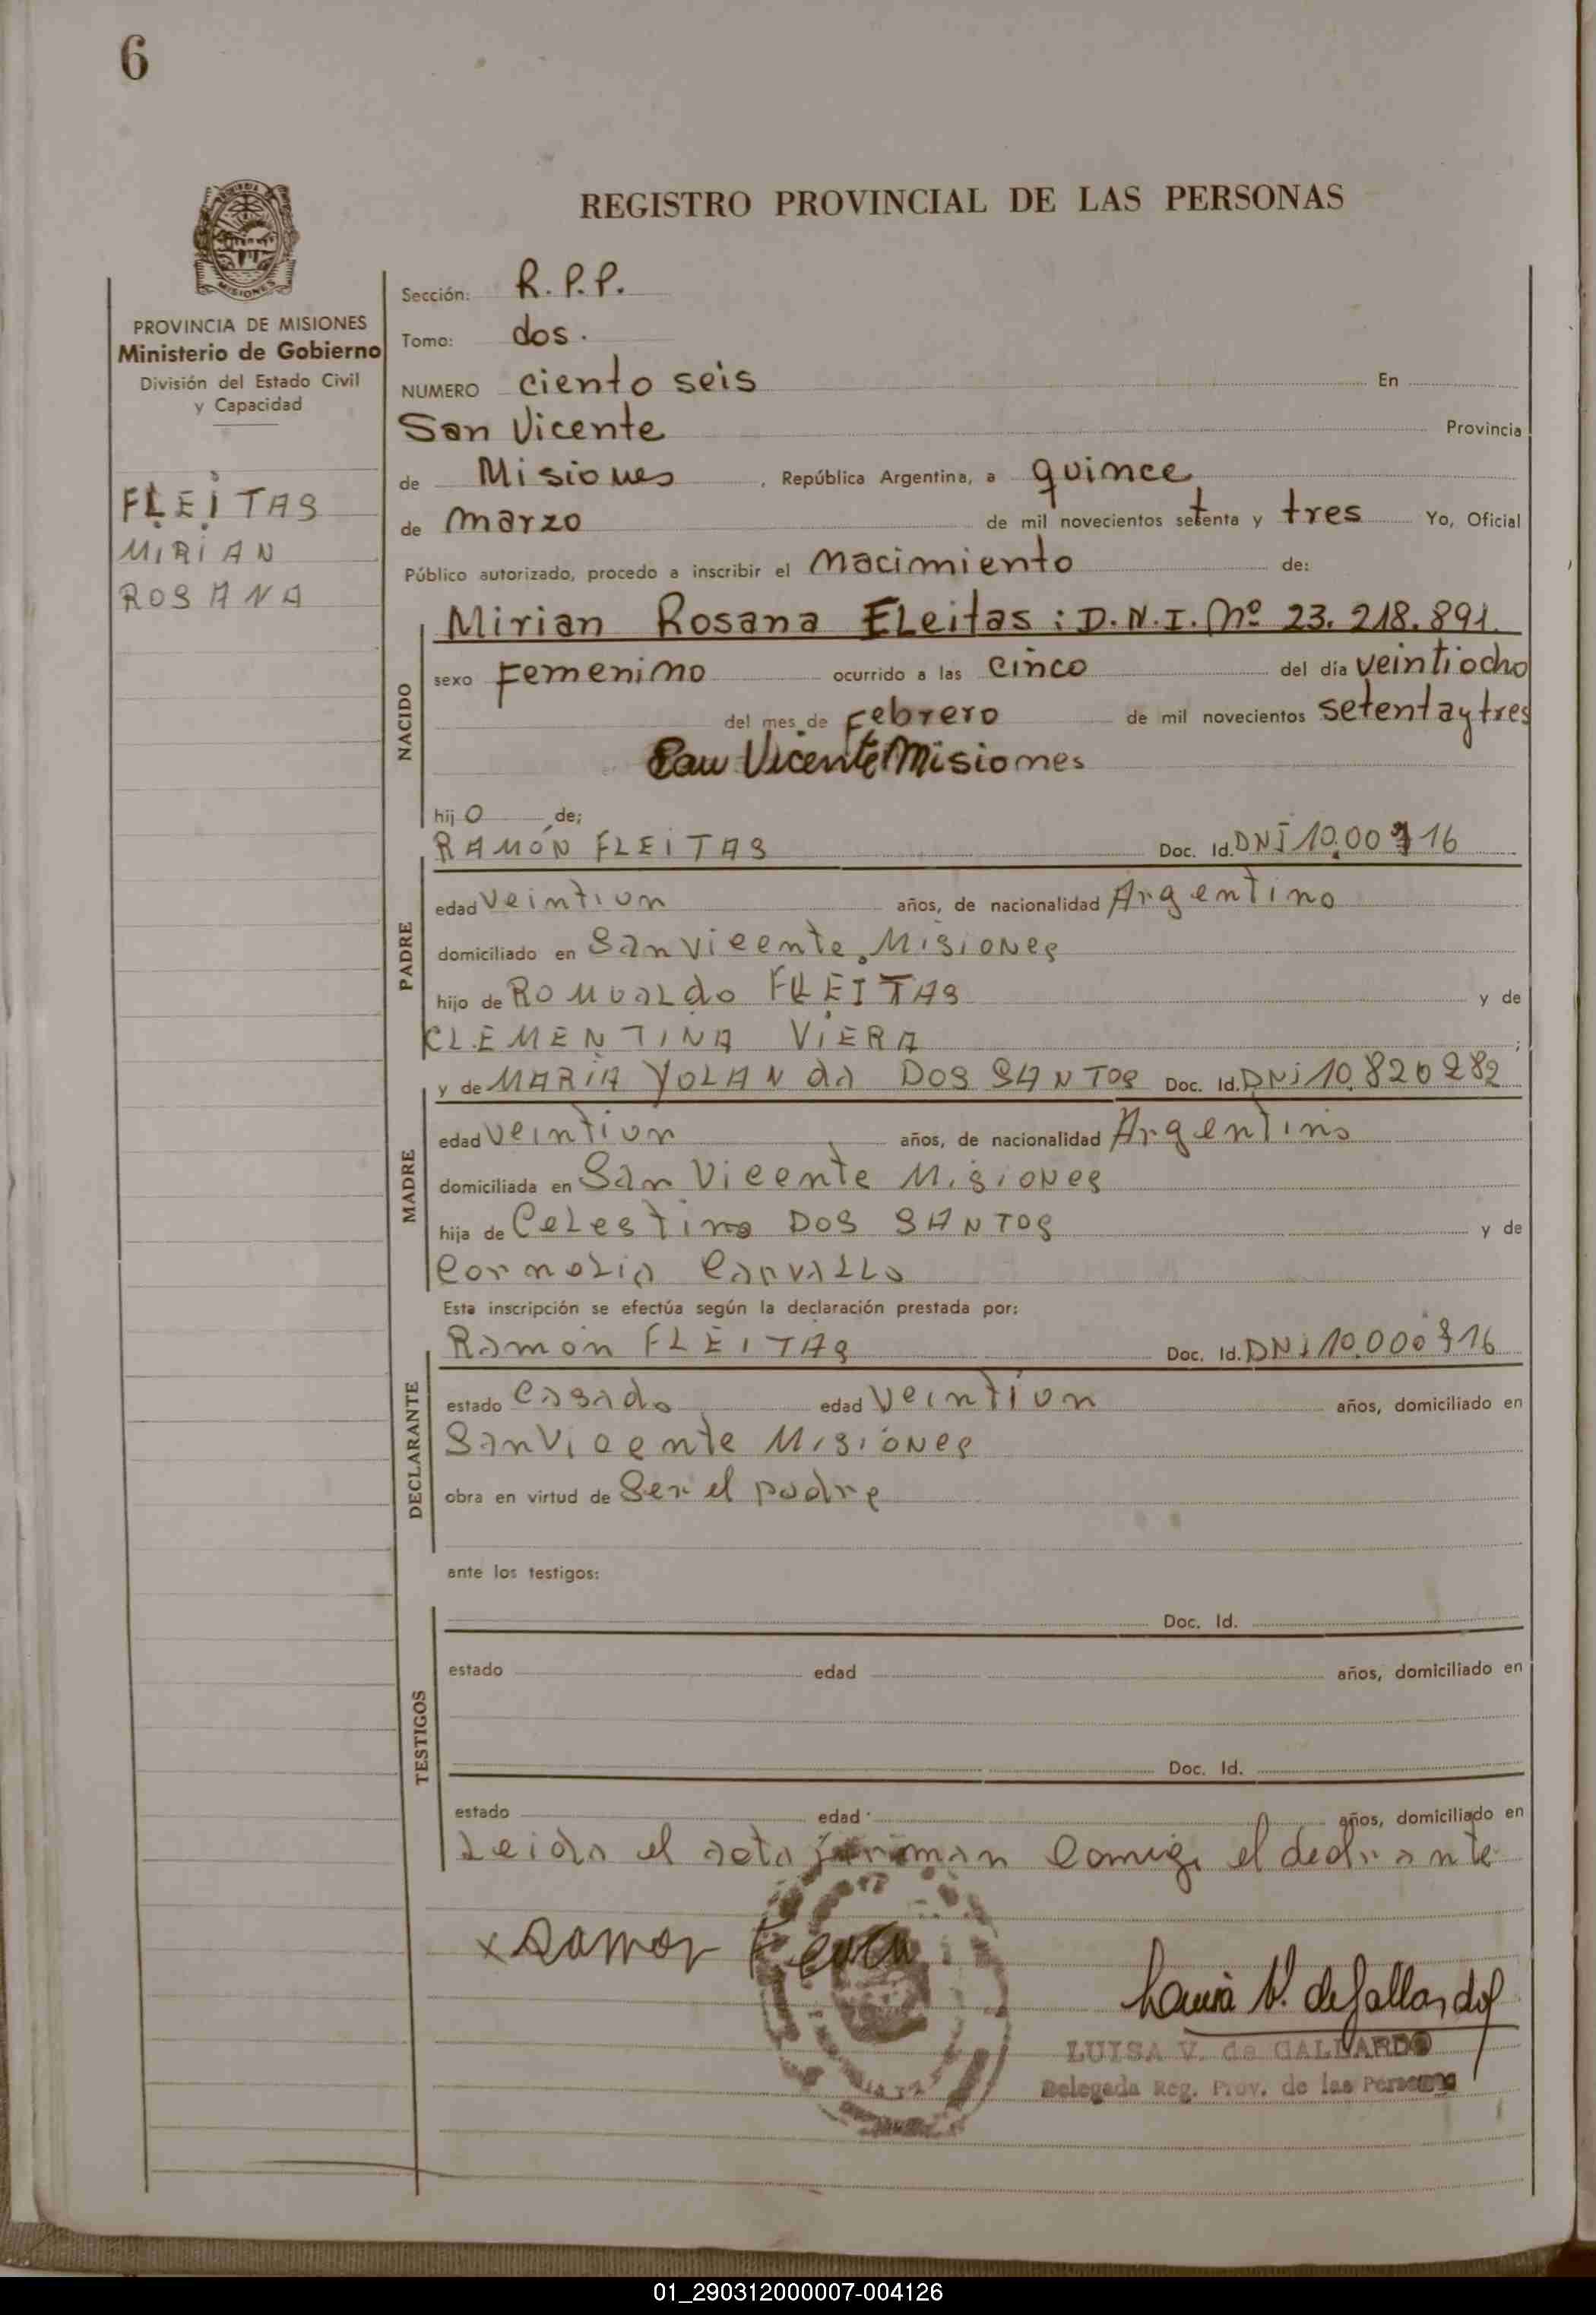 6
REGISTRO PROVINCIAL DE LAS PERSONAS
MISIONES
PROVINCIA DE MISIONES
Ministerio de Gobierno
División del Estado Civil
y Capacidad
FLEITAS
MIRIAN
ROSANA
Sección: R.P.P.
Tomo: dos.
NUMERO ciento seis En
San Vicente Provincia
de Misiones, República Argentina, a quince
de marzo de mil novecientos setenta y tres Yo, Oficial
Público autorizado, procedo a inscribir el nacimiento de:
NACIDO
Mirian Rosana FLeitas: D.N.I. Nº 23.218.891.
sexo Femenino ocurrido a las cinco del día veintiocho
del mes de Febrero de mil novecientos setenta y tres
San Vicente Misiones
hijo de;
PADRE
RAMÓN FLEITAS Doc. Id. DNI
edad veintiun años, de nacionalidad Argentino
domiciliado en San Vicente. Misiones
hijo de Romualdo FLEITAS y de
CLEMENTINA VIERA;
MADRE
y de MARIA YOLANda DOS SANTOS Doc. Id. DNI 10.820282
edad veintiun años, de nacionalidad Argentina
domiciliada en San Vicente Misiones
hija de Celestino DOS SANTOS y de
Cornelia Carvallo
Esta inscripción se efectúa según la declaración prestada por:
DECLARANTE
Ramón FLEITAS Doc. Id. DNI
estado Casado edad Veintiun años, domiciliado en
San Vicente Misiones
obra en virtud de Ser el padre
ante los testigos:
TESTIGOS
Doc. Id.
estado edad años, domiciliado en
Doc. Id.
estado edad años, domiciliado en
Leida el acta firman comigo el declarante
x Ramon
LUISA V. de GALLARDO
Delegada Reg. Prov. de las Personas
01_290312000007-004126